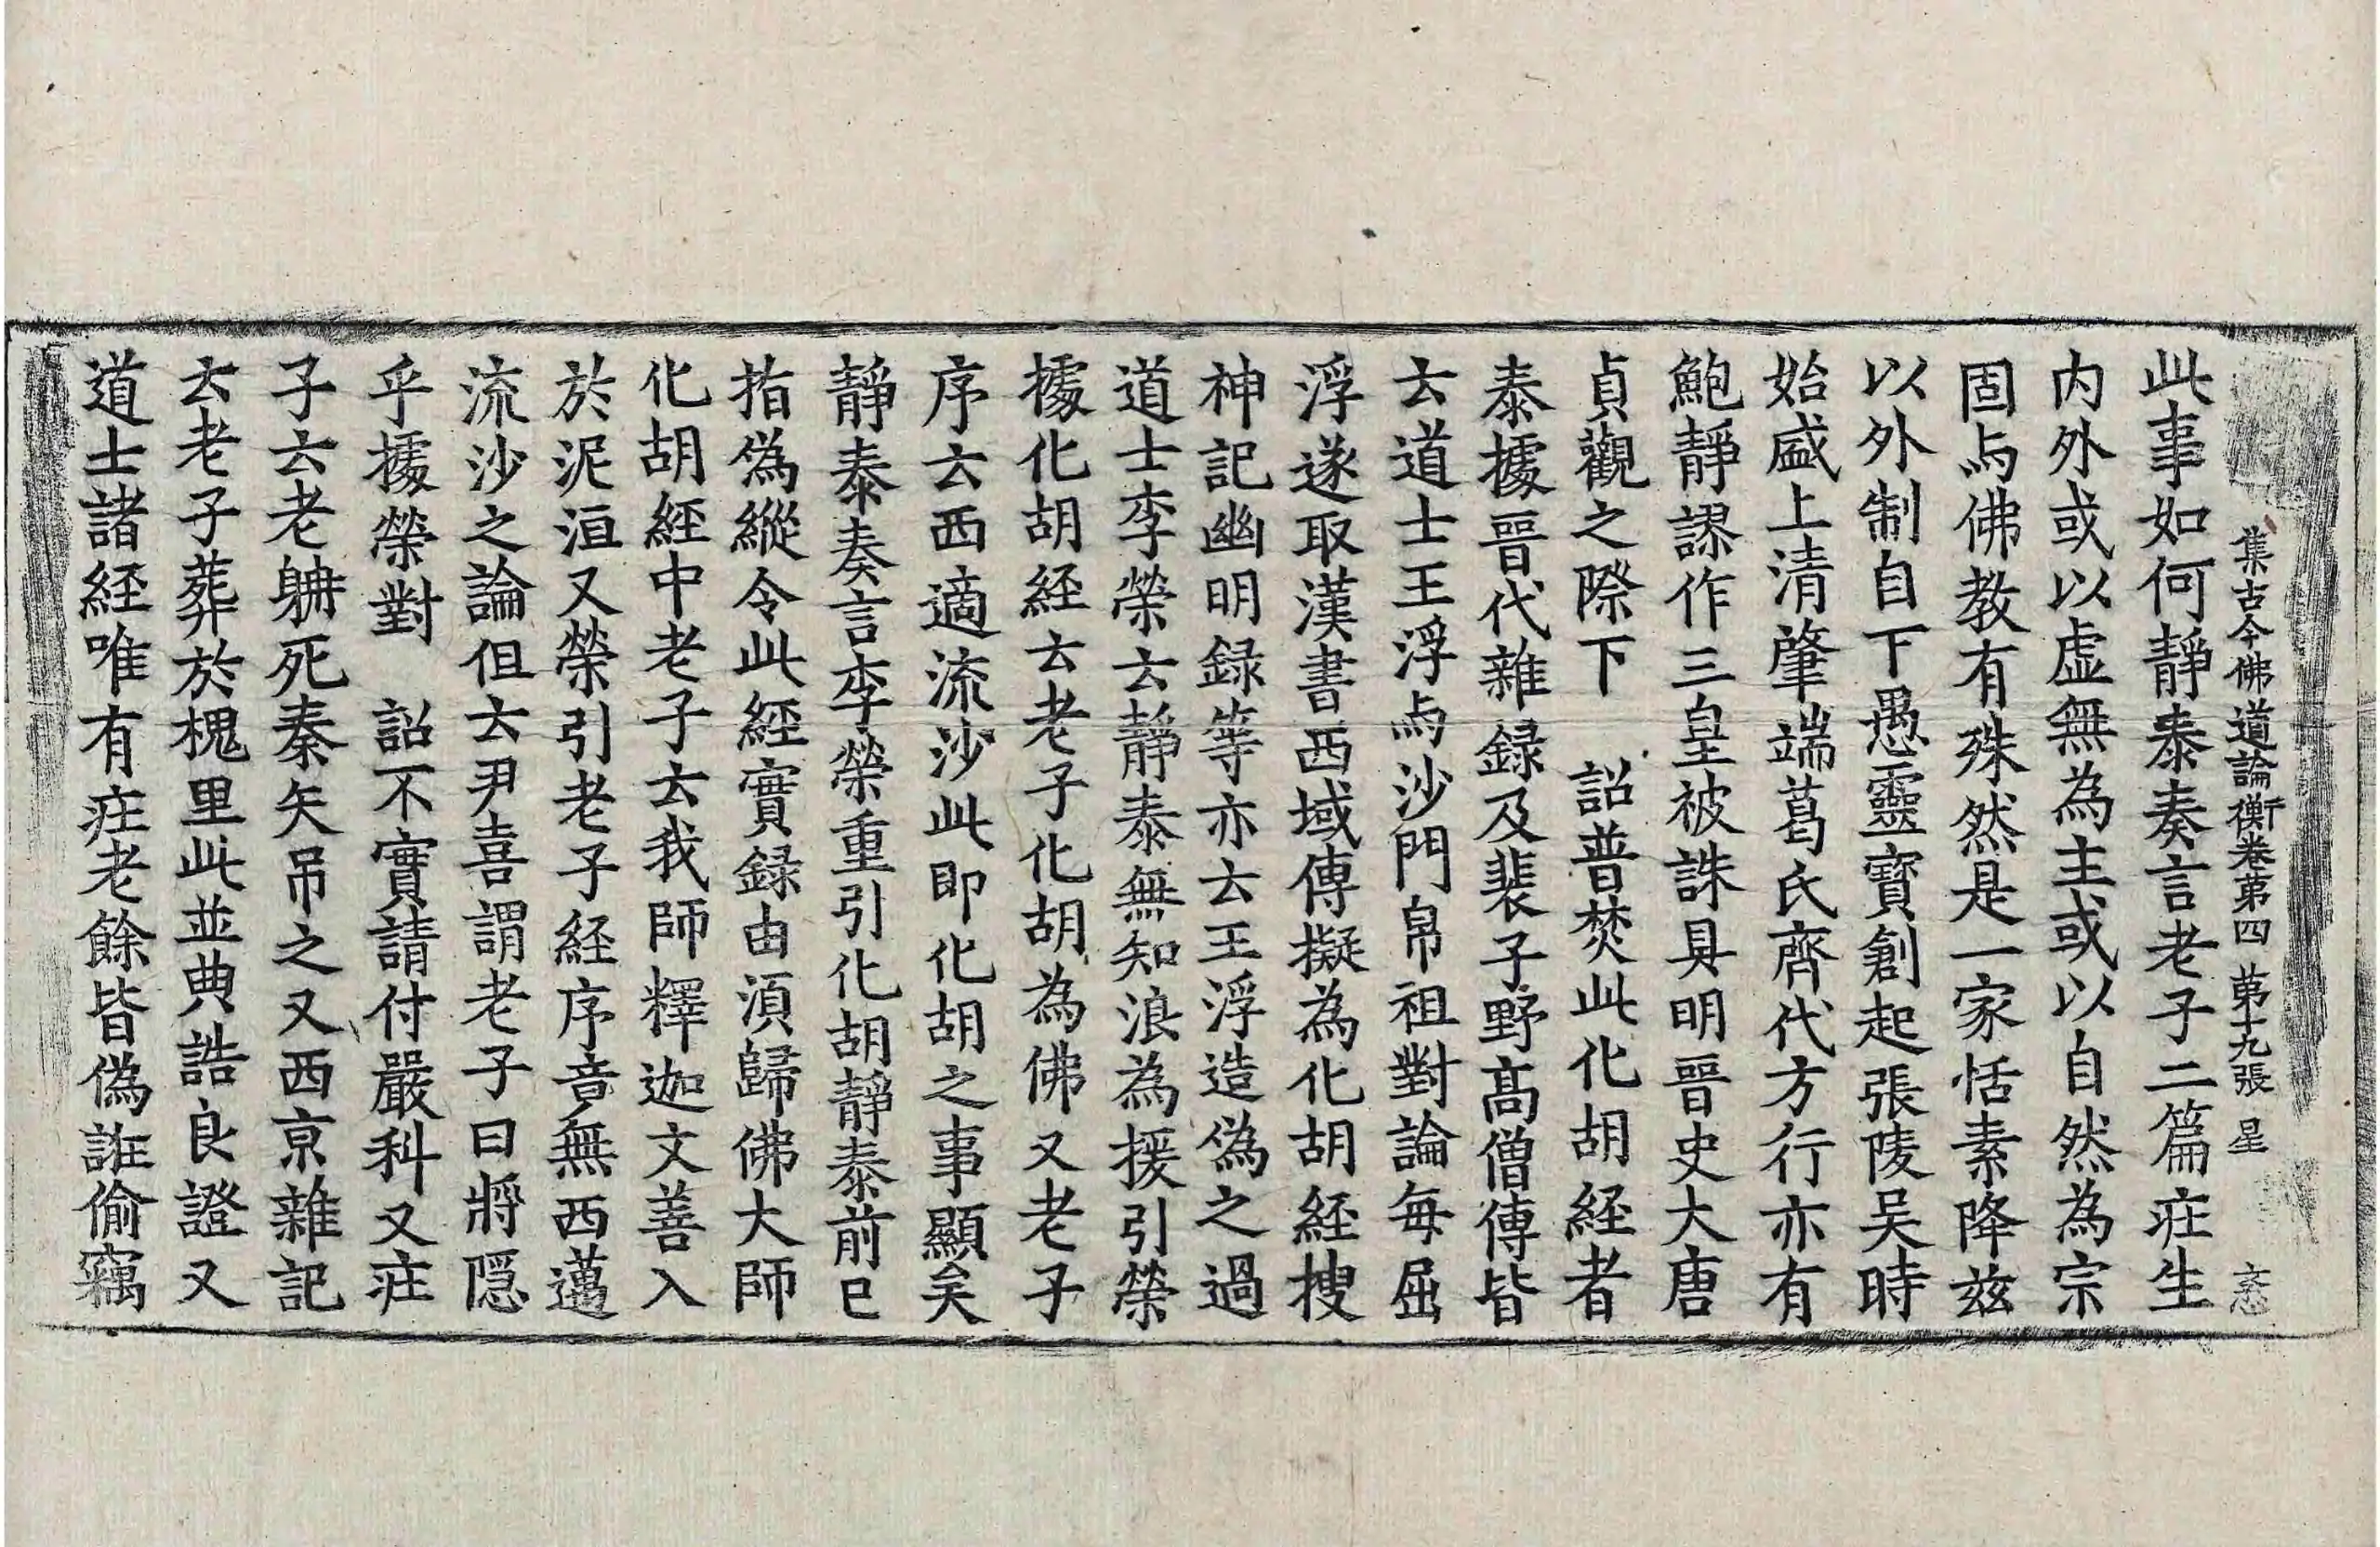 集古今佛道論衡卷第四 第十九張 星
此事如何靜泰奏言老子二篇庄生
内外或以虚無為主或以自然為宗
固与佛教有殊然是一家恬素降兹
以外制自下愚靈寶創起張陵吴時
始盛上清肇端葛氏齊代方行亦有
鮑靜謬作三皇被誅具明晉史大唐
貞觀之際下　詔普焚此化胡経者
泰據晉代雜録及裴子野髙僧傳皆
云道士王浮与沙門帛祖對論每屈
浮遂取漢書西域傳擬為化胡経搜
神記幽明録等亦云王浮造偽之過
道士李榮云靜泰無知浪為援引榮
據化胡経云老子化胡為佛又老子
序云西適流沙此即化胡之事顯矣
靜泰奏言李榮重引化胡靜泰前已
指偽縱令此經實録由湏歸佛大師
化胡經中老子云我師釋迦文善入
於泥洹又榮引老子経序音無西邁
流沙之論但云尹喜謂老子曰將隠
乎據榮對　詔不實請付嚴科又庄
子云老聃死秦矢吊之又西京雜記
云老子葬於槐里此並典誥良證又
道士諸経唯有庄老餘皆偽誑偷竊